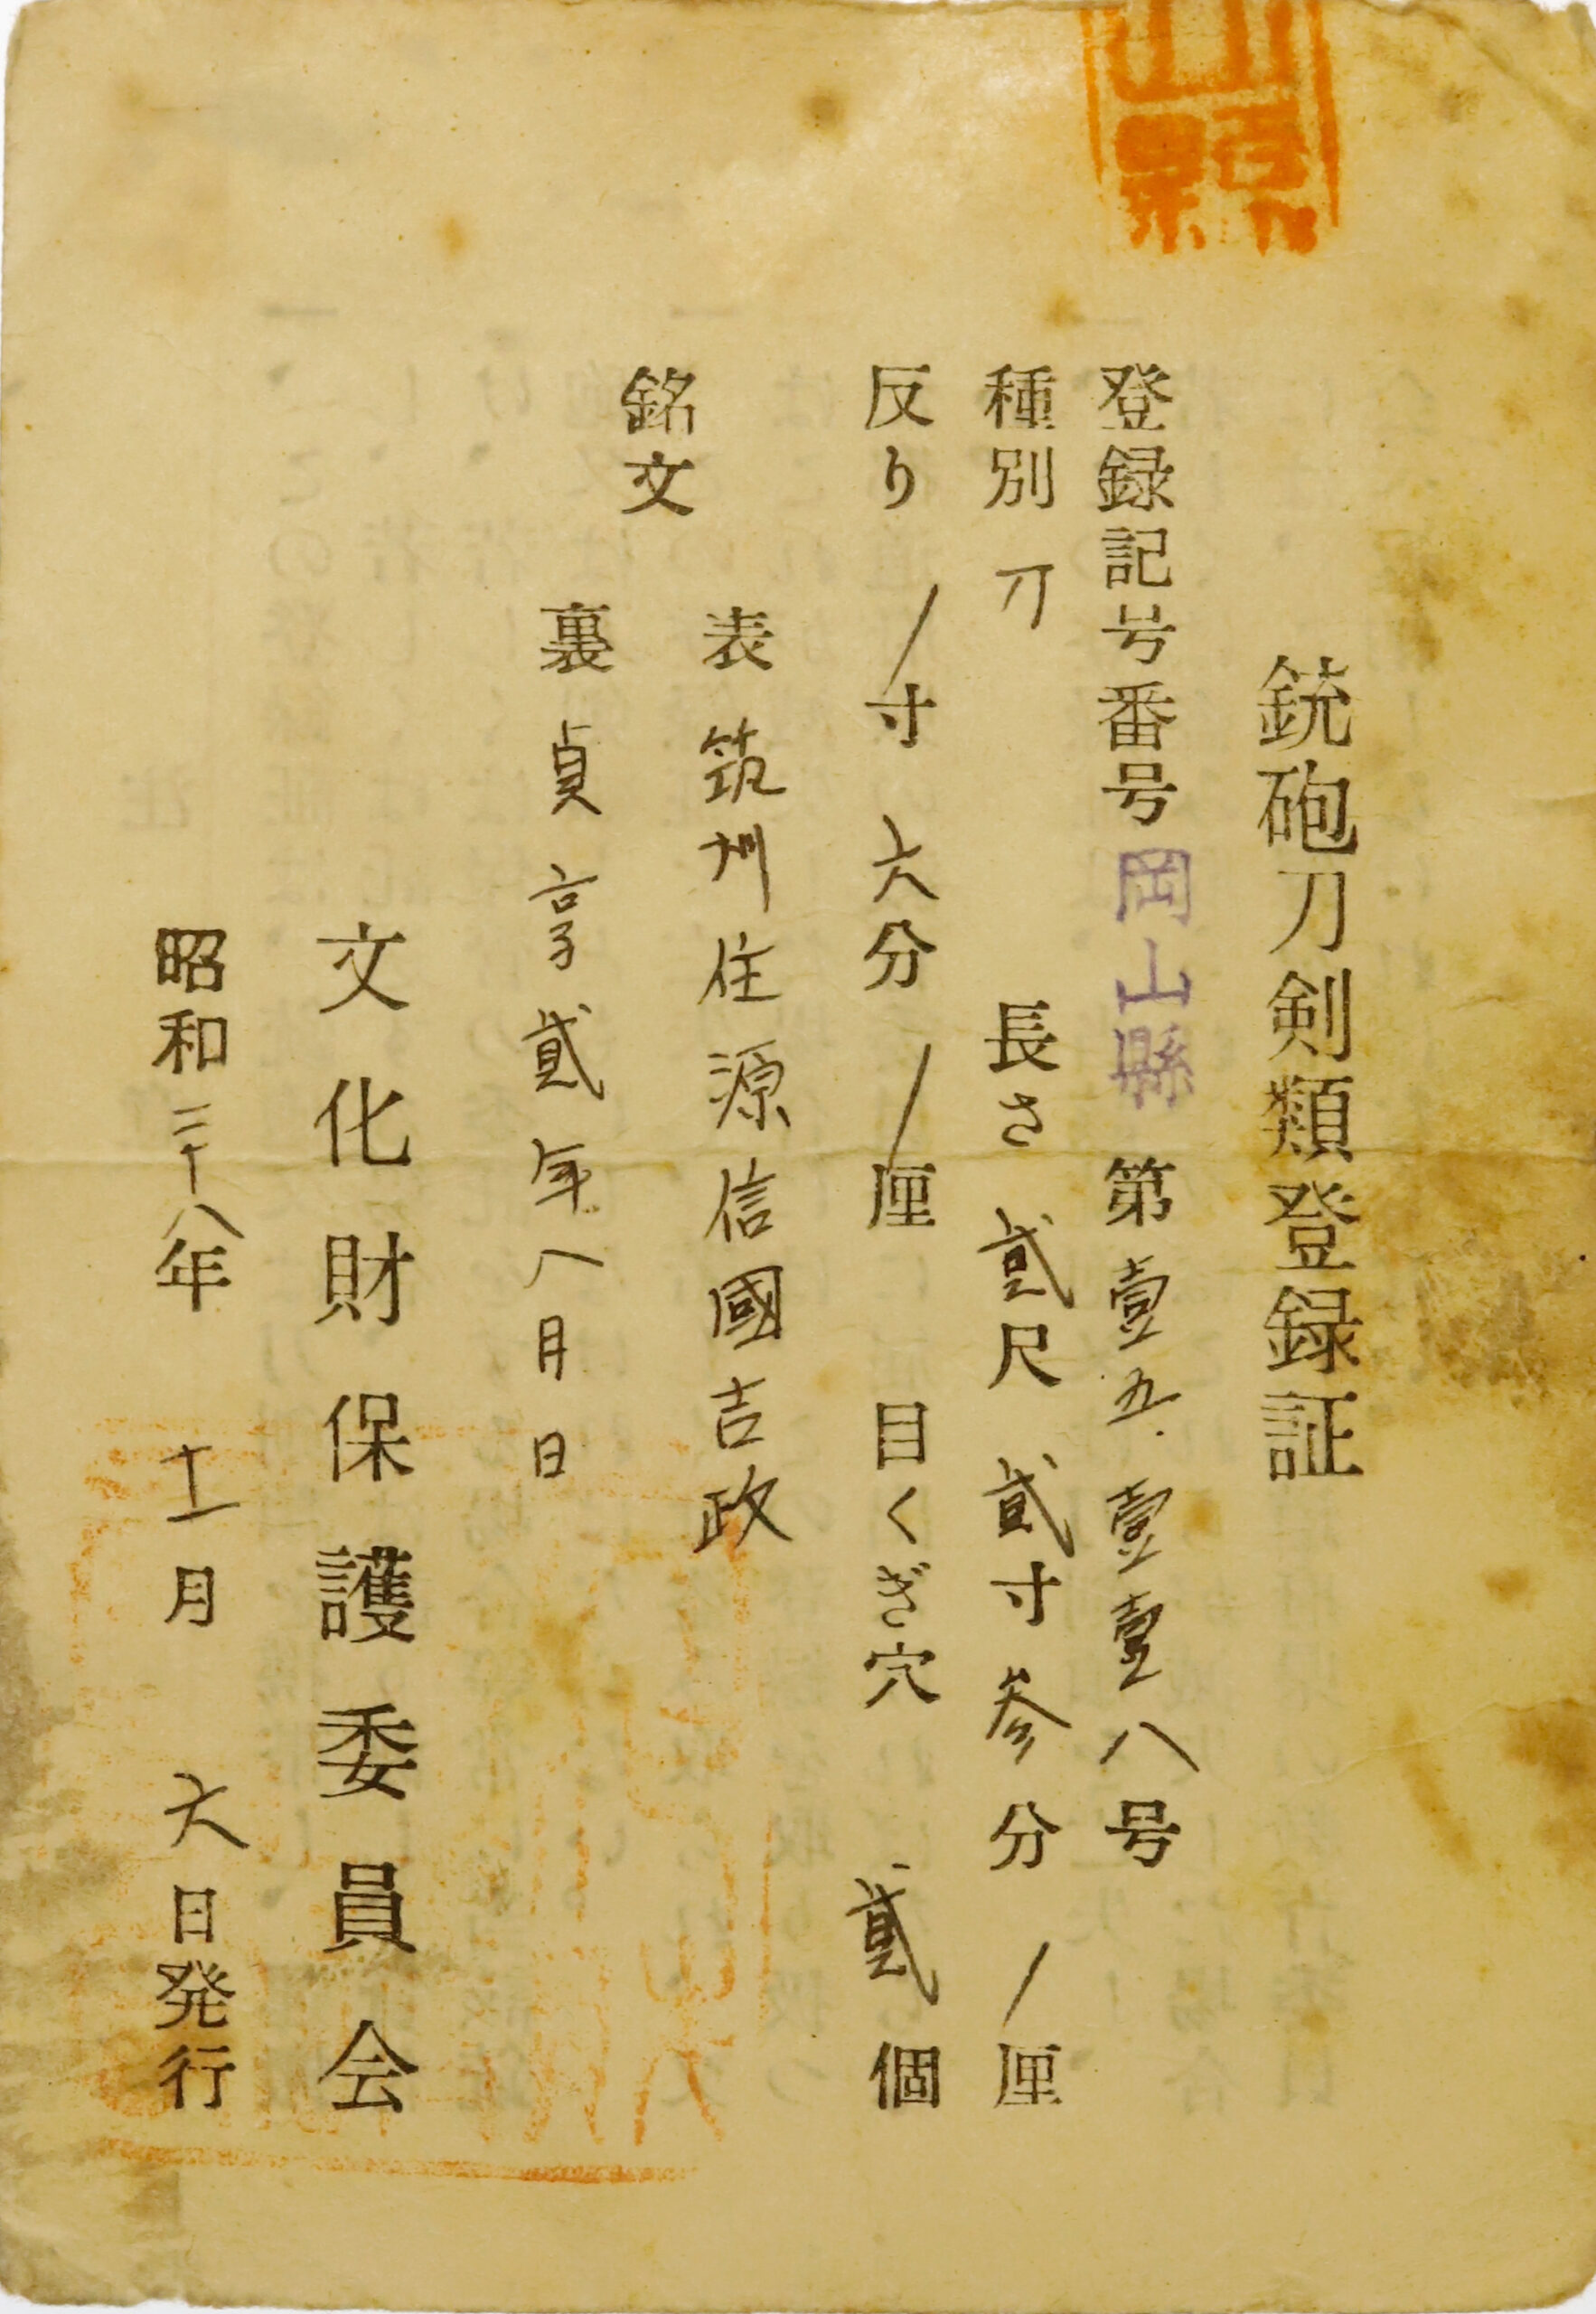 山
縣
銃砲刀剣類登録証
登録記号番号 岡山縣 第壹五壹壹八号
種別 刀 長さ 貳尺 貳寸 参分 / 厘
反り / 寸 六分 / 厘 目くぎ穴 貳個
銘文
表 筑州住源信國吉政
裏 貞享貳年八月日
文化財保護委員会
昭和二十八年 十一月 六日発行